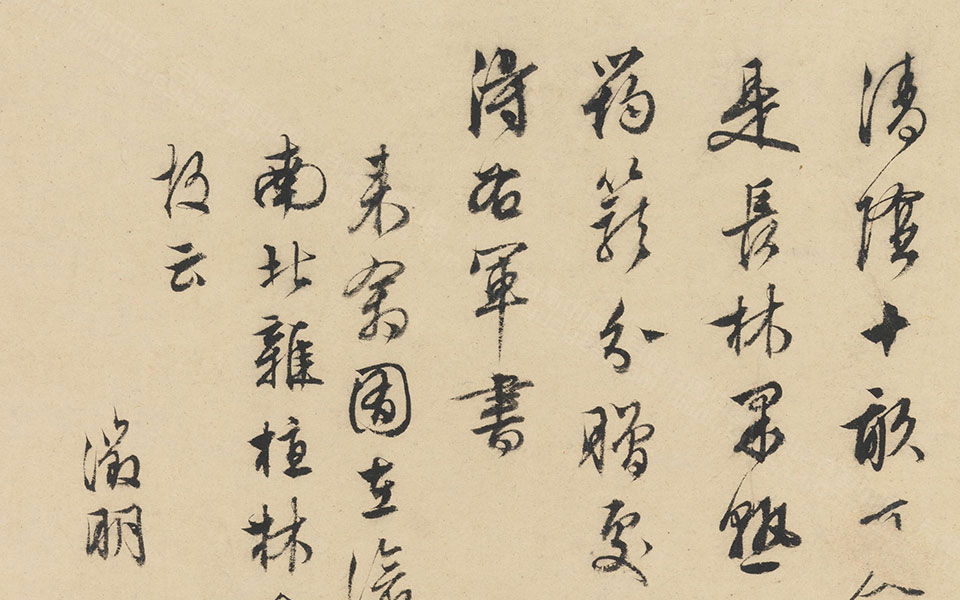 清陰十畝
是長林果熟
筠籠分贈處
得右軍書
來禽囿在滄
南北雜植林
故云
徵明